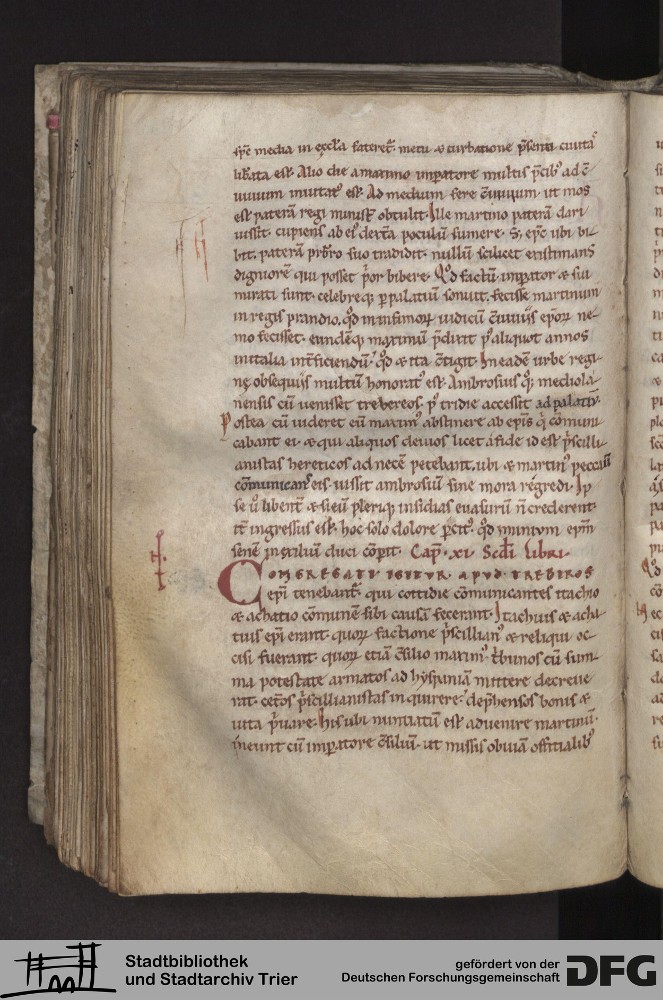 spē media in eccl̄a fateret᷑. metu & turbatione p̄senti ciuita᷒
lib̄ata est. Alio die a maximo imꝑatore multis p̄cib᷒ ad c̄
uiuium inuitat᷒ est. Ad medium fere c̄uiuium ut mos
est paterā regi minist᷑ obtulit. Ille martino paterā dari
iussit. cupiens ab ei᷒ dext̄a poculū sumere. S; ep̄c ubi bi
bit. paterā p̄b̄ro suo tradidit. nullū scilicet existimans
digniorē qui posset p̄or bibere. Qd̄ factū imꝑator & sui
mirati sunt. celebreq; ꝑ palatiū sonuit. fecisse martinum
in regis prandio. qd̄ in infimoꝝ iudicū c̄uiuiis ep̄oꝝ ne
mo fecisset. eundēq; maximū p̄dixit p᷒ aliquot annos
in italia int̄ficiendū. qd̄ & ita c̄tigit. In eadē urbe regi
nę obsequiis multū honorat᷒ est. Ambrosius q̄; mediola
nensis cū uenisset treberos. p᷒ tridie accessit ad palatiū.
Postea cū uideret eū maxim᷒ abstinere ab ep̄is q̄ cōmuni
cabant ei. & qui aliquos deuios licet a fide id est p̄scilli
anistas hereticos ad necē petebant. ubi & martin᷒ peccauit
cōmunicans eis. iussit ambrosiū sine mora regredi. Ip
se ū libent᷑ & si eū pleriq; insidias euasurū n̄ crederent.
it̄ ingressus est. hoc solo dolore ꝑcit᷒. qd̄ miniom ep̄m
senē in exiliū duci cōꝑit. Cap̄. xi. Scd̄i Libri.
CONGREGATI IGITUR APUD TREBIROS
ep̄i tenebant᷑. qui cottidie cōmunicantes itachio
& achatio cōmunē sibi causā fecerant. Itachius & acha
tius ep̄i erant. quoꝝ factione p̄scillian᷒ & reliqui oc
cisi fuerant. quoꝝ etiā c̄silio maxim᷒ t̄bunos cū sum
ma potestate armatos ad hyspaniā mittere decreue
rat. cet̄os p̄scillianistas inquirere. dep̄hensos bonis &
uita p̄uare. His ubi nuntiatū est aduenire martinū.
ineunt cū imꝑatore c̄siliū. ut missis obuiā officialib᷒
Stadtbibliothek
und Stadtarchiv Trier
gefördert von der
Deutschen Forschungsgemeinschaft
DFG